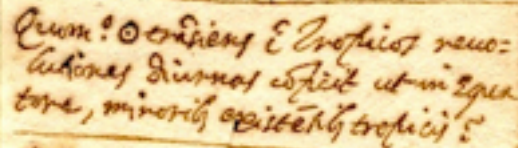 Quom.º ☉ trãsiens ĩ Tropicos reuo-
lutiones diurnas cõficit ut in Equa
tore, minorib9 existẽtib9 tropicis?